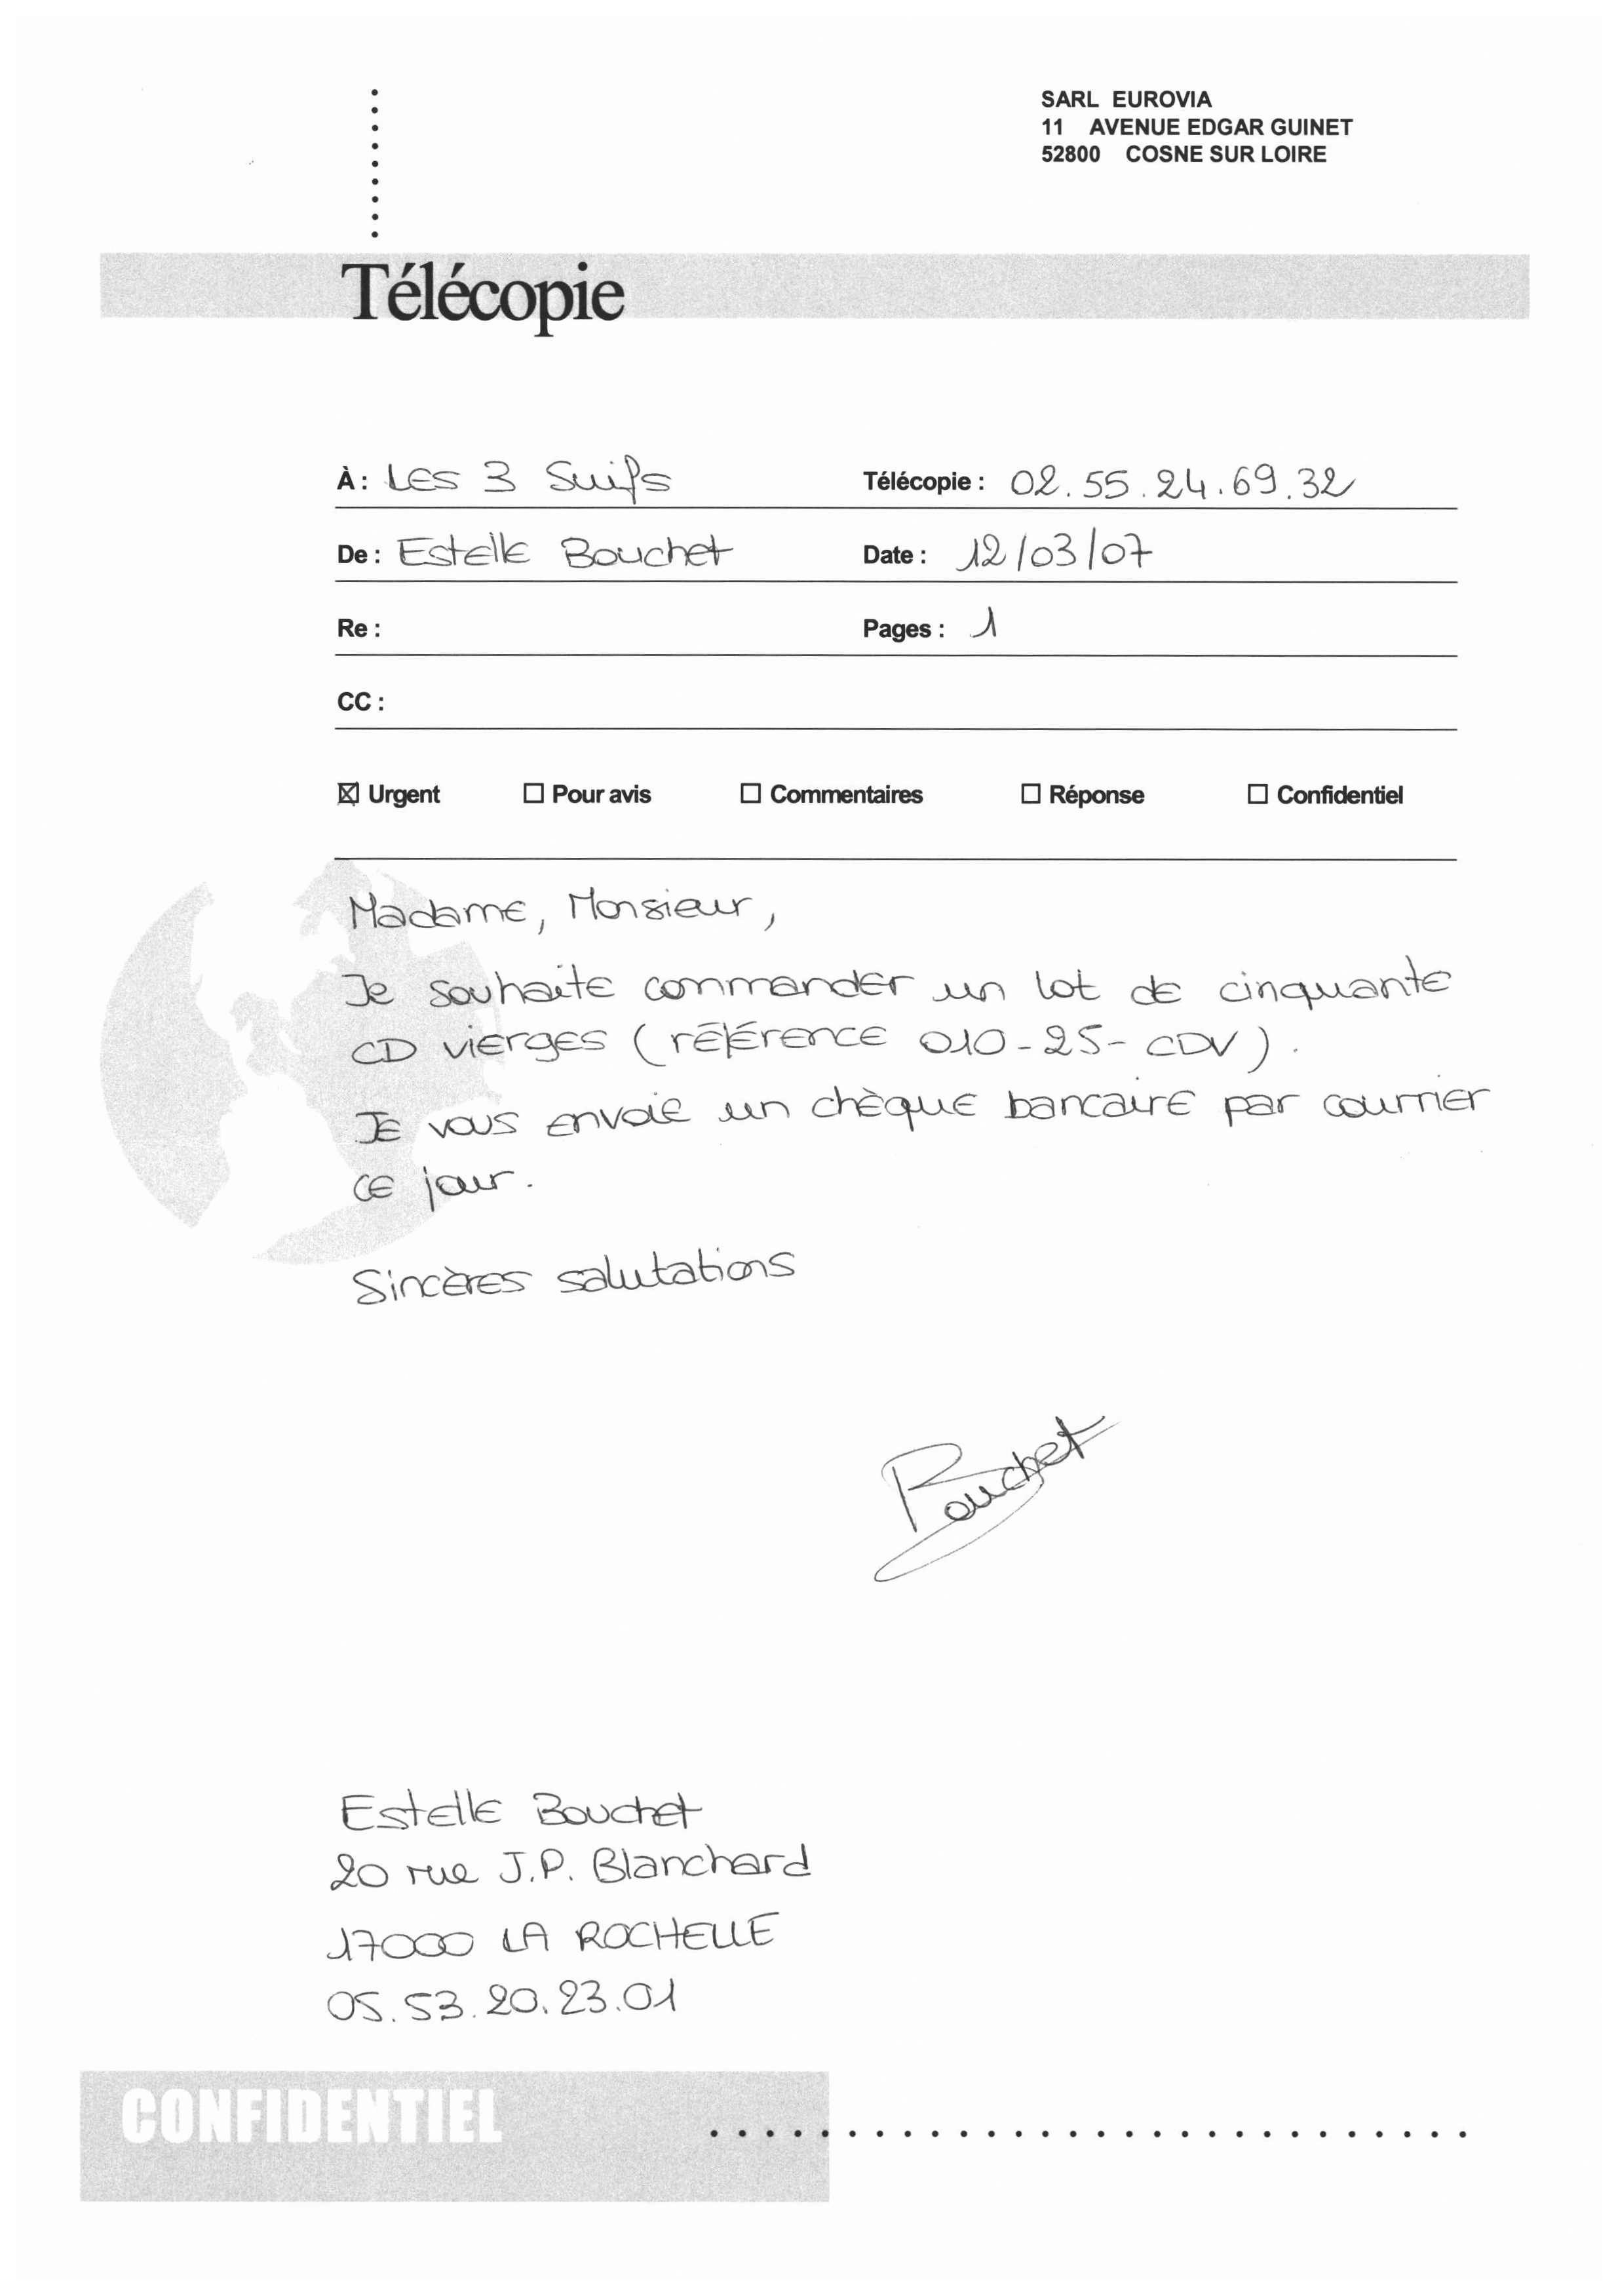 SARL EUROVIA
11 AVENUE EDGAR GUINET
52800 COSNE SUR LOIRE
Télécopie
À : Les 3 Suifs Télécopie : 02.55.24.69.32
De : Estelle Bouchet Date : 12/03/07
Re : Pages : 1
CC :
☒ Urgent ☐ Pour avis ☐ Commentaires ☐ Réponse ☐ Confidentiel
Madame, Monsieur,
Je souhaite commander un lot de cinquante
CD vierges (référence 010-25-CDV).
Je vous envoie un chèque bancaire par courrier
ce jour.
Sincères salutations
Bouchet
Estelle Bouchet
20 rue J.P. Blanchard
17000 LA ROCHELLE
05.53.20.23.01
CONFIDENTIEL